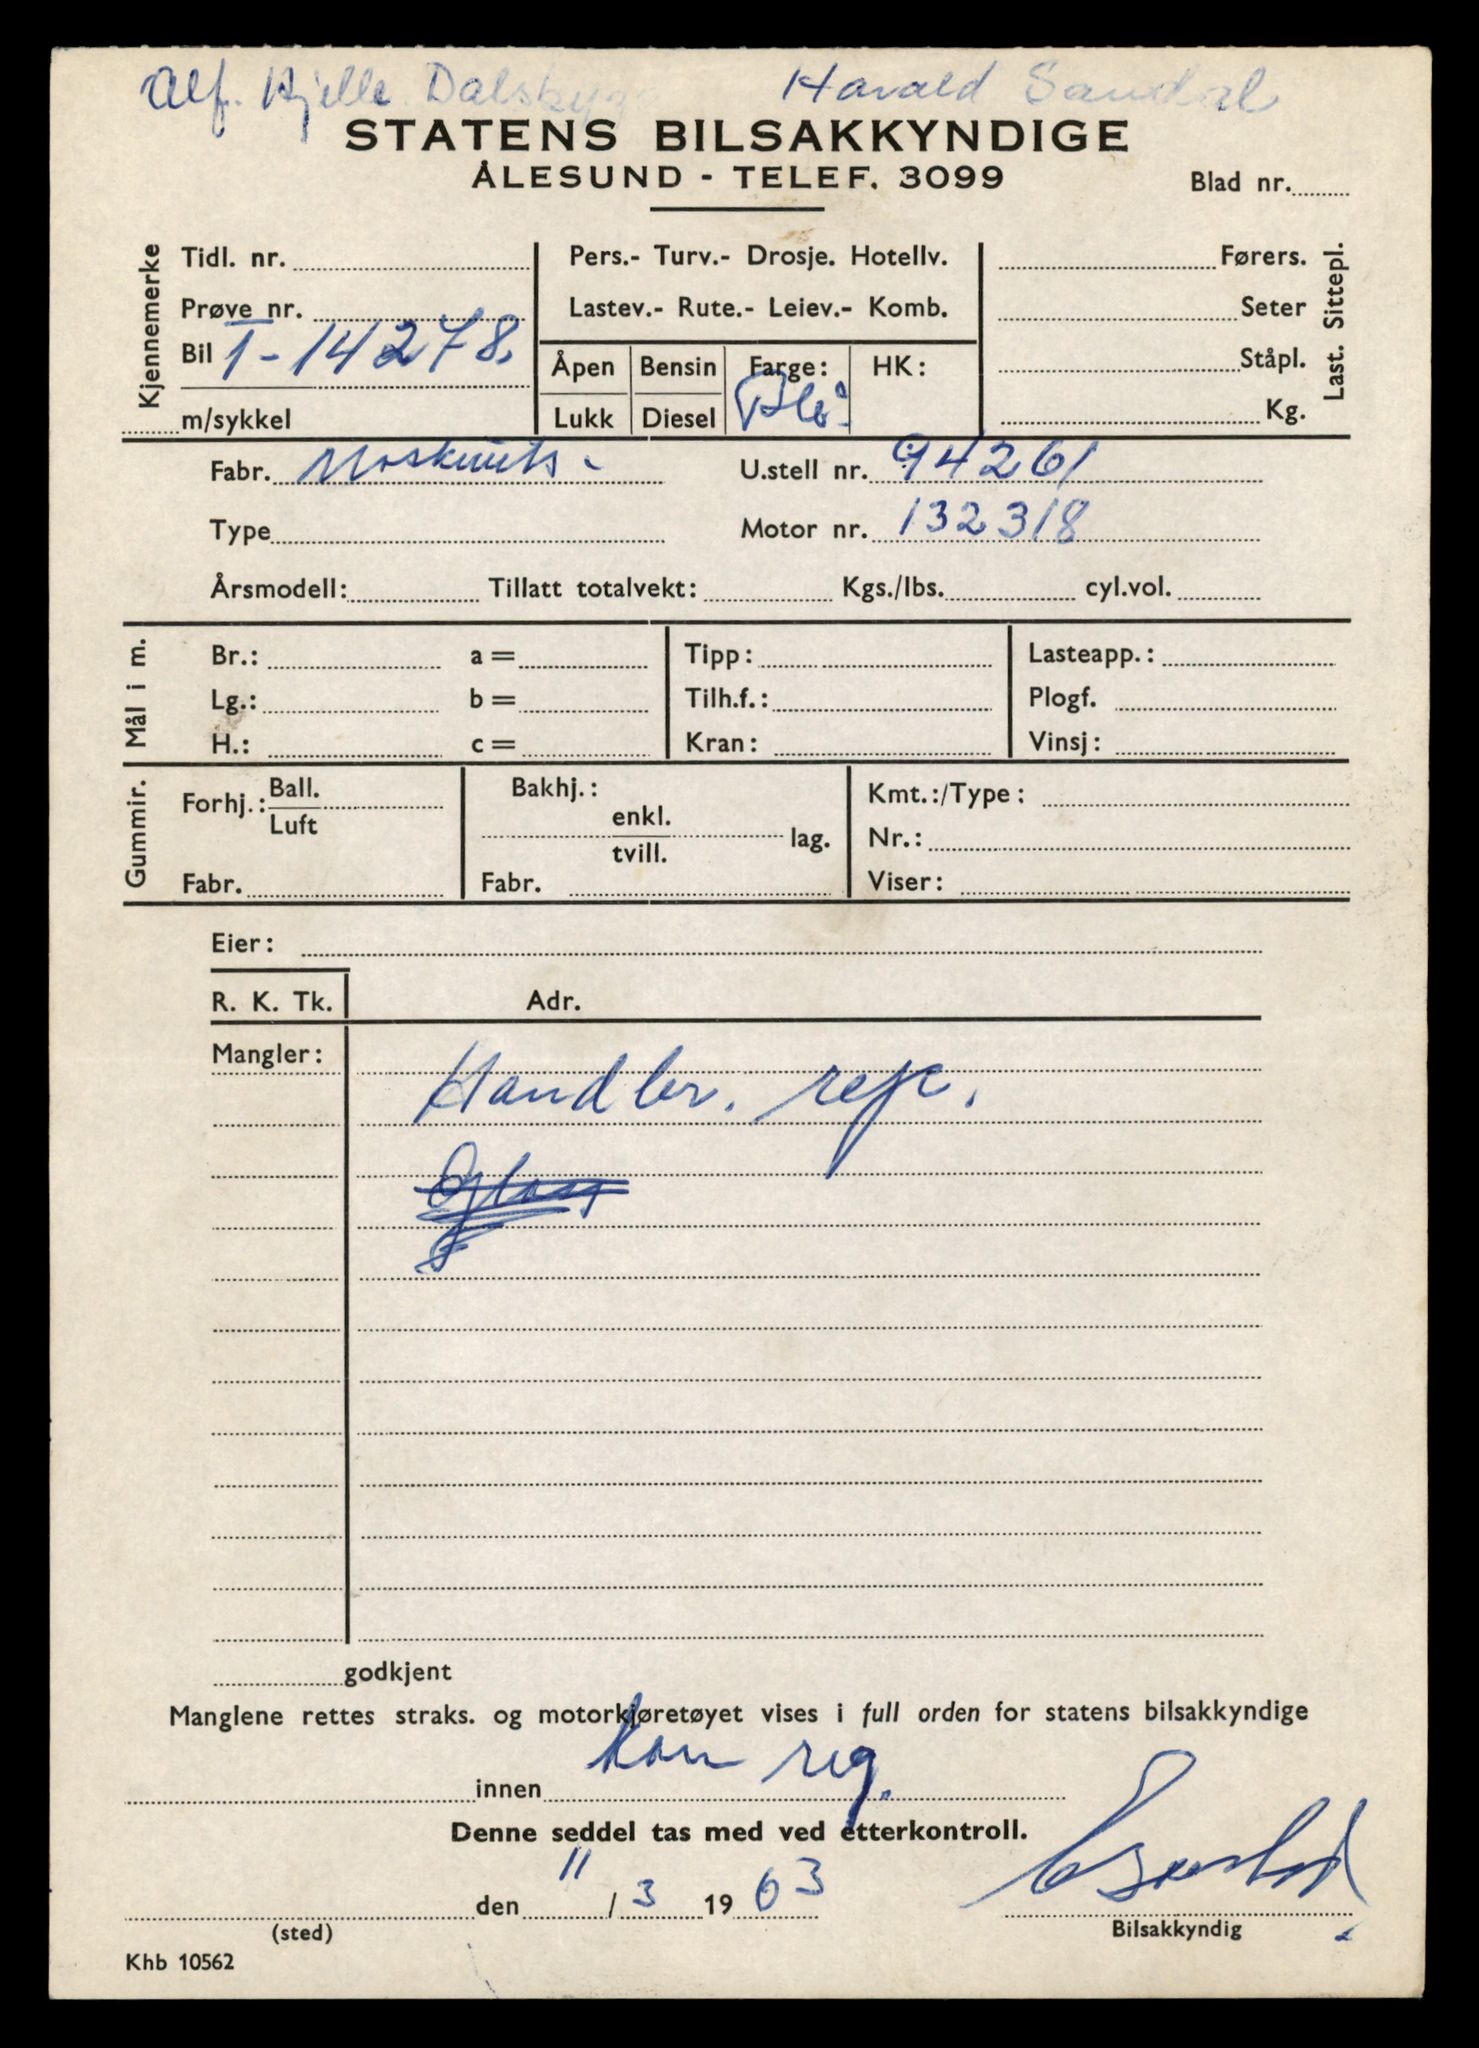 Alf. Kjelle Dalsbygg Harald Sandal
STATENS BILSAKKYNDIGE
ÅLESUND - TELEF. 3099
Blad nr.
Kjennemerke
Tidl. nr.
Prøve nr.
Bil T-14278.
m/sykkel
Pers.- Turv.- Drosje. Hotellv.
Lastev.- Rute.- Leiev.- Komb.
Åpen Bensin Farge: HK:
Lukk Diesel Blå.
Førers.
Seter
Ståpl.
Kg.
Last. Sittepl.
Fabr. Moskvits U.stell nr. 94261
Type Motor nr. 132318
Årsmodell: Tillatt totalvekt: Kgs./lbs. cyl.vol.
Mål i m.
Br.: a = Tipp: Lasteapp.:
Lg.: b = Tilh.f.: Plogf.
H.: c = Kran: Vinsj:
Gummir.
Forhj.: Ball.
Luft
Fabr.
Bakhj.:
enkl.
tvill. lag.
Fabr.
Kmt.:/Type:
Nr.:
Viser:
Eier:
R. K. Tk. Adr.
Mangler:
Handbr. rep.
godkjent
Manglene rettes straks. og motorkjøretøyet vises i full orden for statens bilsakkyndige
innen kan reg.
Denne seddel tas med ved etterkontroll.
den 11/3 1963
(sted) Bilsakkyndig
Khb 10562